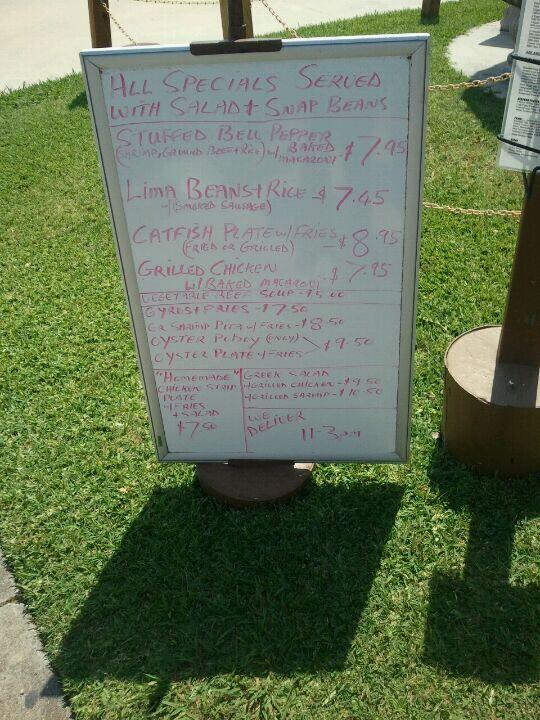 ALL SPECIALS SERVED
WITH SALAD + SNAP BEANS
STUFFED BELL PEPPER
(SHRIMP, GROUND BEEF + RICE) w/ BAKED MACARONI $7.95
LIMA BEANS + RICE $7.45
w/ (SMOKED SAUSAGE)
CATFISH PLATE w/ FRIES
(FRIED OR GRILLED) - $8.95
GRILLED CHICKEN
w/ BAKED MACARONI - $7.95
VEGETABLE BEEF SOUP - $5.00
GYROS + FRIES - $7.50
GR SHRIMP PITA w/ FRIES - $8.50
OYSTER POBOY (ONLY)
OYSTER PLATE + FRIES $9.50
"HOMEMADE"
CHICKEN STRIP
PLATE
+ FRIES
+ SALAD
$7.50
GREEK SALAD
+ GRILLED CHICKEN - $9.50
+ GRILLED SHRIMP - $10.50
WE
DELIVER
11-3pm